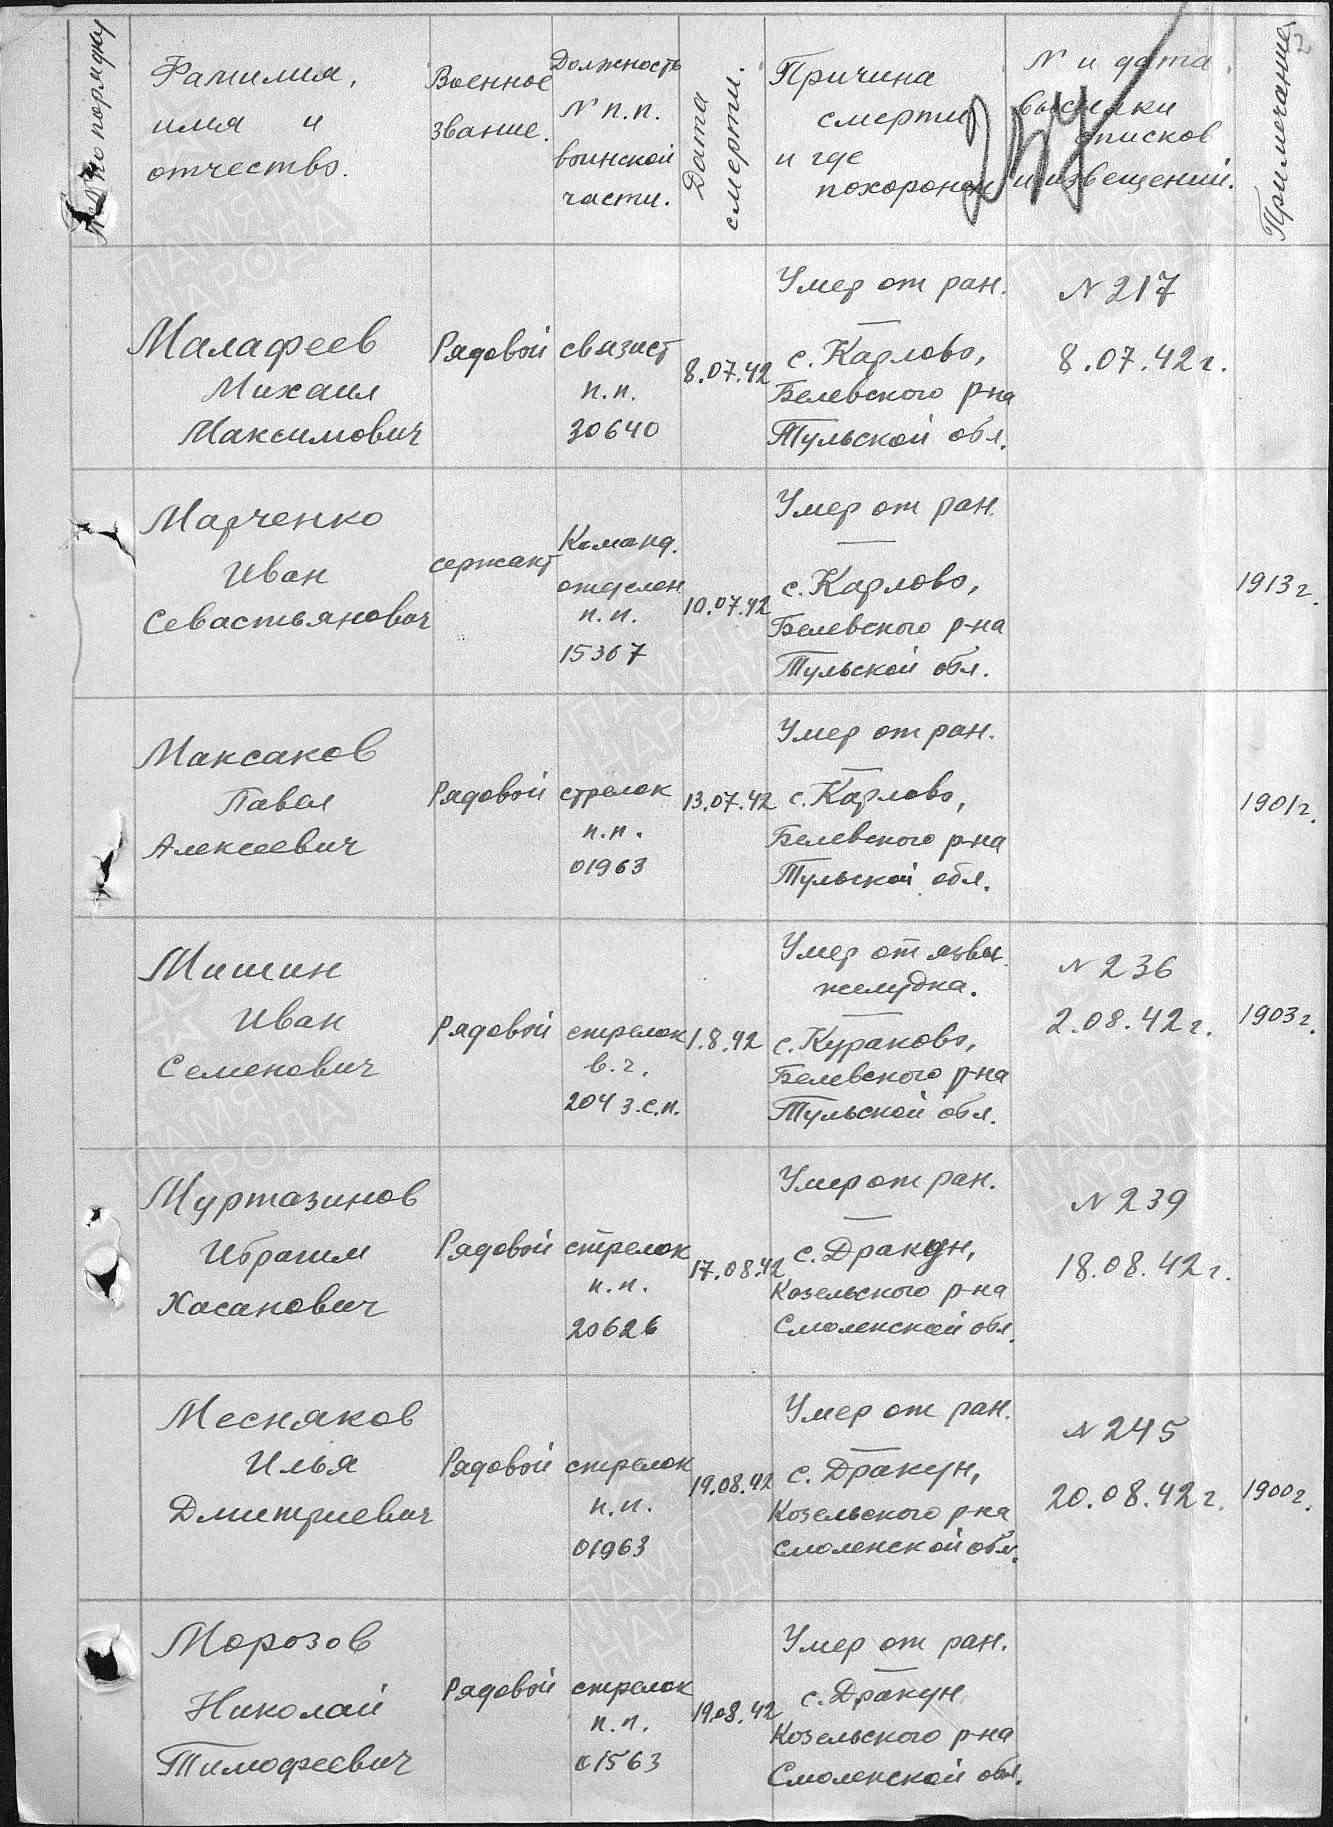 № по порядку
Фамилия,
имя и
отчество.
Военное
звание.
Должность
N п.п.
воинской
части.
Дата
смерти.
Причина
смерти
и где
похоронен
N и дата
высылки
списков
и извещений.
Примечание
2
Малафеев
Михаил
Максимович
Рядовой
связист
п.п.
30640
8.07.42
Умер от ран.
с. Карлово,
Белевского р-на
Тульской обл.
N 217
8.07.42 г.
Марченко
Иван
Севастьянович
сержант
Команд.
отделен
п.п.
15367
10.07.42
Умер от ран.
с. Карлово,
Белевского р-на
Тульской обл.
1913 г.
Максаков
Павел
Алексеевич
Рядовой
стрелок
п.п.
01963
13.07.42
Умер от ран.
с. Карлово,
Белевского р-на
Тульской обл.
1901 г.
Мишин
Иван
Семенович
Рядовой
стрелок
в.ч.
204 з.с.п.
1.8.42
Умер от язвы
желудка.
с. Кураково,
Белевского р-на
Тульской обл.
N 236
2.08.42 г.
1903 г.
Муртазинов
Ибрагим
Хасанович
Рядовой
стрелок
п.п.
20626
17.08.42
Умер от ран.
с. Дракун,
Козельского р-на
Смоленской обл.
N 239
18.08.42 г.
Месняков
Илья
Дмитриевич
Рядовой
стрелок
п.п.
01963
19.08.42
Умер от ран.
с. Дракун,
Козельского р-на
Смоленской обл.
N 245
20.08.42 г.
1900 г.
Морозов
Николай
Тимофеевич
Рядовой
стрелок
п.п.
01563
19.08.42
Умер от ран.
с. Дракун
Козельского р-на
Смоленской обл.
ПАМЯТЬ
НАРОДА